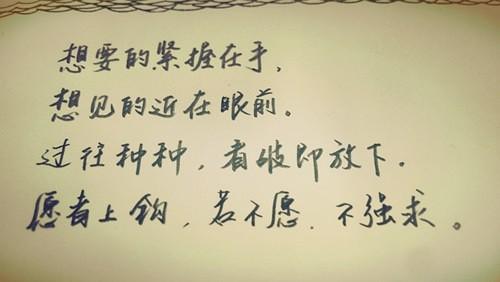 想要的紧握在手，
想见的近在眼前。
过往种种，看破即放下．
愿者上钩，若不愿．不强求。